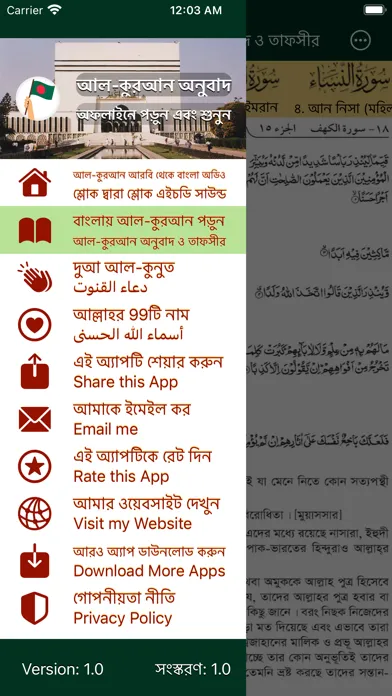 Carrier 12:03 AM
আল-কুরআন অনুবাদ
অফলাইনে পড়ুন এবং শুনুন
আল-কুরআন আরবি থেকে বাংলা অডিও
শ্লোক দ্বারা শ্লোক এইচডি সাউন্ড
বাংলায় আল-কুরআন পড়ুন
আল-কুরআন অনুবাদ ও তাফসীর
দুআ আল-কুনুত
دعاء القنوت
আল্লাহর 99টি নাম
أسماء الله الحسنى
এই অ্যাপটি শেয়ার করুন
Share this App
আমাকে ইমেইল কর
Email me
এই অ্যাপটিকে রেট দিন
Rate this App
আমার ওয়েবসাইট দেখুন
Visit my Website
আরও অ্যাপ ডাউনলোড করুন
Download More Apps
গোপনীয়তা নীতি
Privacy Policy
Version: 1.0 সংস্করণ: 1.0
ও তাফসীর
سورة النساء
ইমরান 8. আন নিসা
١٨- سورة الكهف الجزء ١٥
مَاكِثِينَ فِيهِ أَبَدًا
যা মেনে নিতে কোন সত্যপন্থী
[মুয়াসসার]
এদের মধ্যে রয়েছে নাসারা, ইহুদী
পাক-ভারতের হিন্দুরাও আল্লাহর
অমুককে আল্লাহ পুত্র হিসেবে
যে, তাদের আল্লাহর পুত্র হবার বা
কিছু জানে। বরং নিছক নিজেদের
মত দিয়েছে এবং এভাবে তারা
মালিক ও প্রভু আল্লাহর
তার কোন অনুভূতিই তাদের
ভ্রষ্ট করছে তাদের সন্তান-